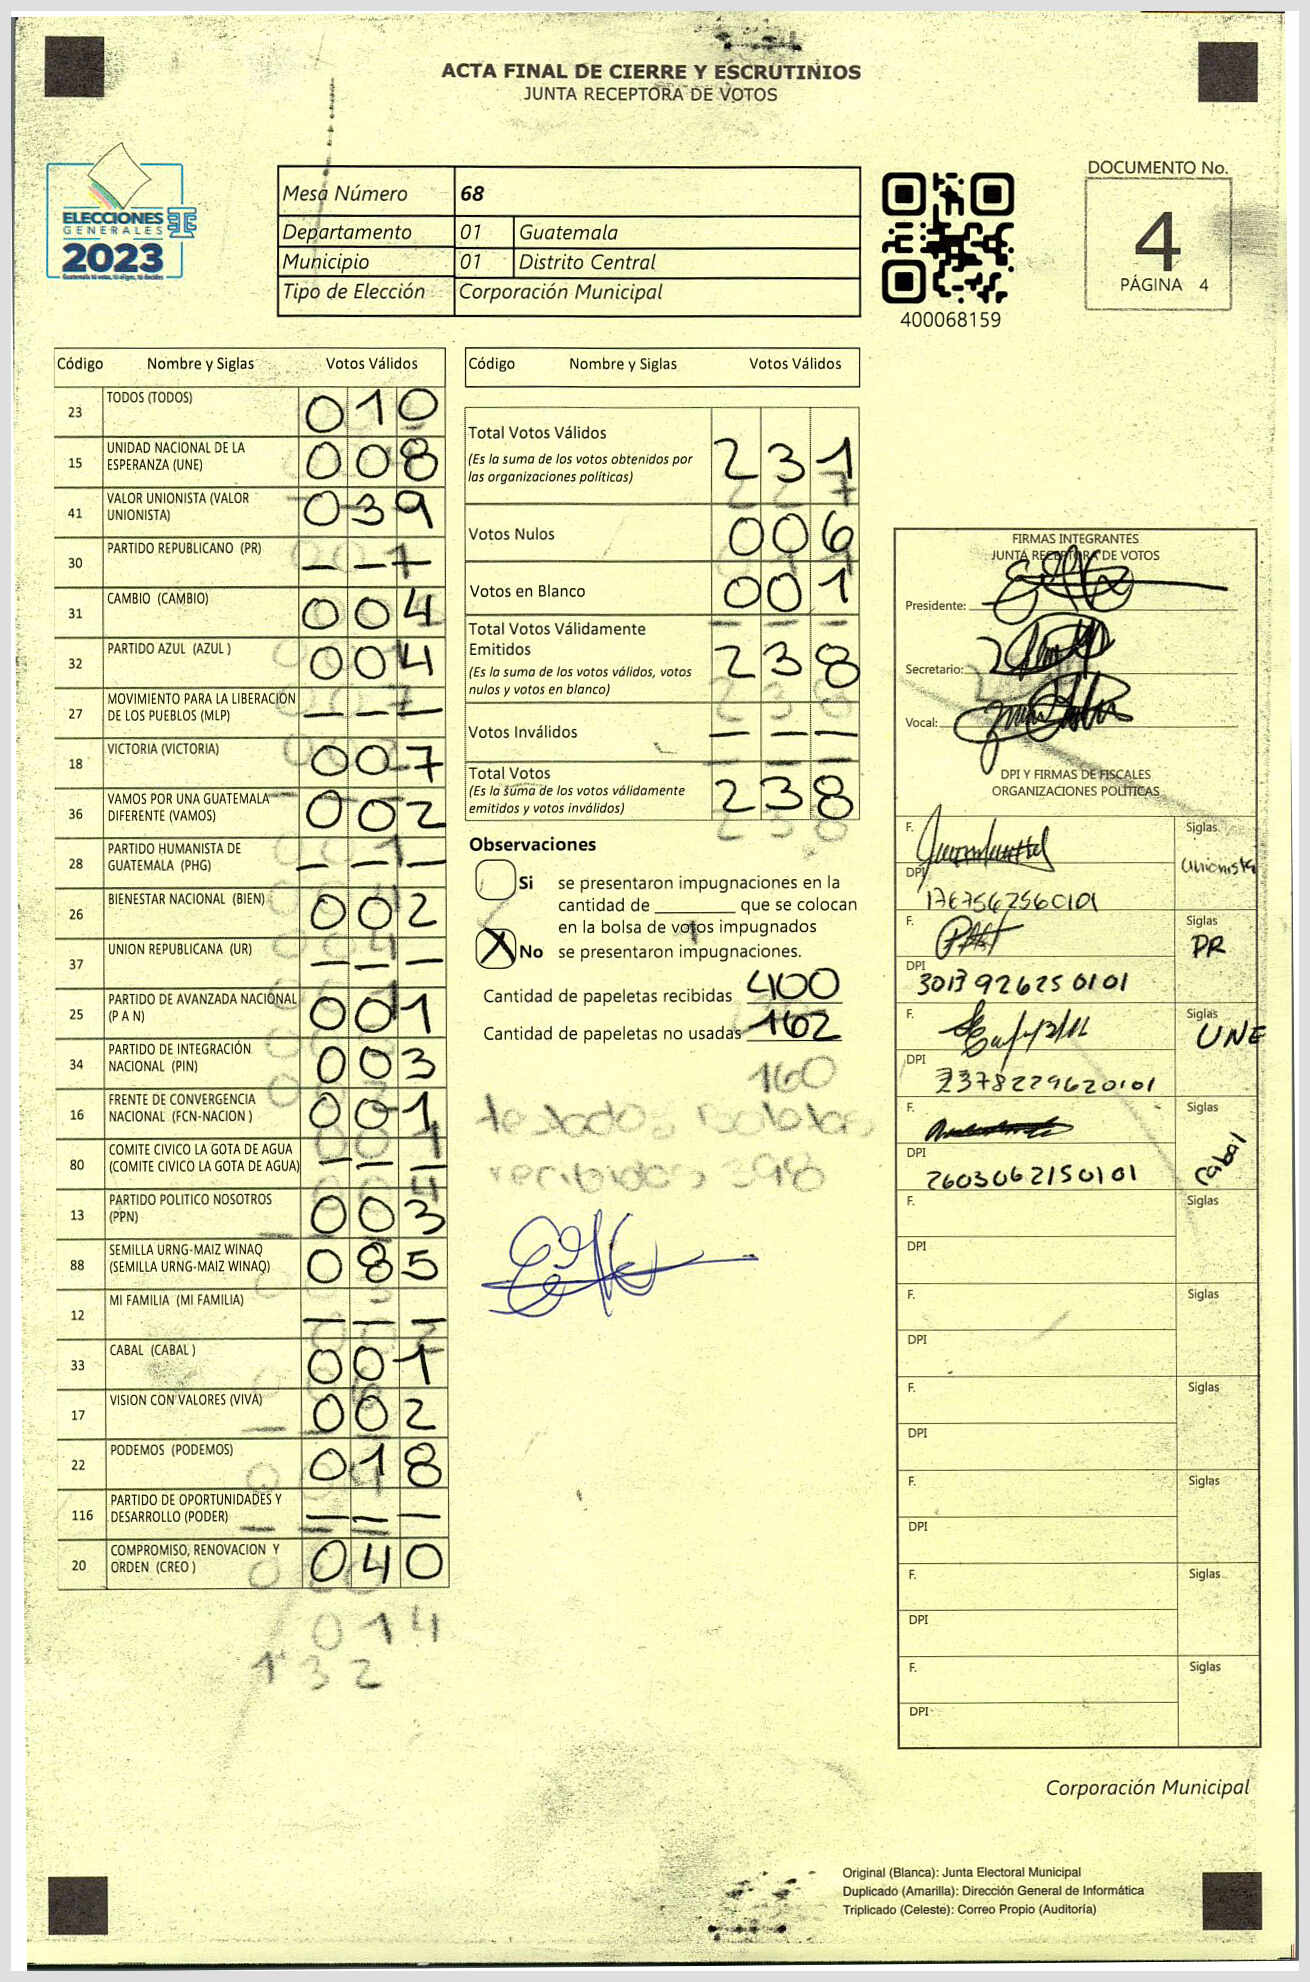 ACTA FINAL DE CIERRE Y ESCRUTINIOS
JUNTA RECEPTORA DE VOTOS
ELECCIONES
GENERALES
2023
Mesa Número 68
Departamento 01 Guatemala
Municipio 01 Distrito Central
Tipo de Elección Corporación Municipal
400068159
DOCUMENTO No.
4
PÁGINA 4
Código Nombre y Siglas Votos Válidos
23 TODOS (TODOS) 010
15 UNIDAD NACIONAL DE LA ESPERANZA (UNE) 008
41 VALOR UNIONISTA (VALOR UNIONISTA) 039
30 PARTIDO REPUBLICANO (PR) — — —
31 CAMBIO (CAMBIO) 004
32 PARTIDO AZUL (AZUL ) 004
27 MOVIMIENTO PARA LA LIBERACIÓN DE LOS PUEBLOS (MLP) — — —
18 VICTORIA (VICTORIA) 007
36 VAMOS POR UNA GUATEMALA DIFERENTE (VAMOS) 002
28 PARTIDO HUMANISTA DE GUATEMALA (PHG) — — —
26 BIENESTAR NACIONAL (BIEN) 002
37 UNION REPUBLICANA (UR) — — —
25 PARTIDO DE AVANZADA NACIONAL (P A N) 001
34 PARTIDO DE INTEGRACIÓN NACIONAL (PIN) 003
16 FRENTE DE CONVERGENCIA NACIONAL (FCN-NACION ) 001
80 COMITE CIVICO LA GOTA DE AGUA (COMITE CIVICO LA GOTA DE AGUA) — — —
13 PARTIDO POLITICO NOSOTROS (PPN) 003
88 SEMILLA URNG-MAIZ WINAQ (SEMILLA URNG-MAIZ WINAQ) 085
12 MI FAMILIA (MI FAMILIA) — — —
33 CABAL (CABAL ) 001
17 VISION CON VALORES (VIVA) 002
22 PODEMOS (PODEMOS) 018
116 PARTIDO DE OPORTUNIDADES Y DESARROLLO (PODER) — — —
20 COMPROMISO, RENOVACION Y ORDEN (CREO ) 040
014
132
Código Nombre y Siglas Votos Válidos
Total Votos Válidos 231
(Es la suma de los votos obtenidos por
las organizaciones políticas)
Votos Nulos 006
Votos en Blanco 001
Total Votos Válidamente
Emitidos 238
(Es la suma de los votos válidos, votos
nulos y votos en blanco)
Votos Inválidos — — —
Total Votos 238
(Es la suma de los votos válidamente
emitidos y votos inválidos)
Observaciones
Si se presentaron impugnaciones en la
cantidad de ________ que se colocan
en la bolsa de votos impugnados
X No se presentaron impugnaciones.
Cantidad de papeletas recibidas 400
Cantidad de papeletas no usadas 162
160
recibidas 398
FIRMAS INTEGRANTES
JUNTA RECEPTORA DE VOTOS
Presidente:
Secretario:
Vocal:
DPI Y FIRMAS DE FISCALES
ORGANIZACIONES POLÍTICAS
F. Siglas Unionista
DPI 1767562560101
F. Siglas PR
DPI 3013926250101
F. Siglas UNE
DPI 2378229620101
F. Siglas Cabal
DPI 2603062150101
F. Siglas
DPI
F. Siglas
DPI
F. Siglas
DPI
F. Siglas
DPI
F. Siglas
DPI
F. Siglas
DPI
Corporación Municipal
Original (Blanca): Junta Electoral Municipal
Duplicado (Amarilla): Dirección General de Informática
Triplicado (Celeste): Correo Propio (Auditoría)